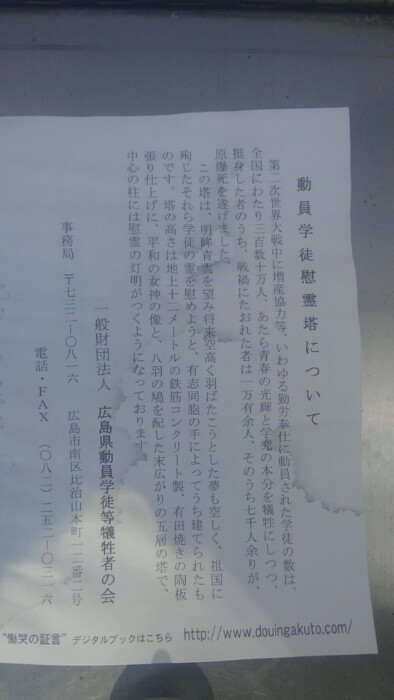 動員学徒慰霊塔について
第二次世界大戦中に増産協力等、いわゆる勤労奉仕に動員された学徒の数は、
全国にわたり三百数十万人、あたら青春の光輝と学究の本分を犠牲にしつつ、
挺身した者のうち、戦禍にたおれた者は一万有余人、そのうち七千人余りが、
原爆死を遂げました。
この塔は、明眸青雲を望み将来空高く羽ばたこうとした夢も空しく、祖国に
殉じたそれら学徒の霊を慰めようと、有志同胞の手によってうち建てられたも
のです。塔の高さは地上十二メートルの鉄筋コンクリート製、有田焼きの陶板
張り仕上げに、平和の女神の像と、八羽の鳩を配した末広がりの五層の塔で、
中心の柱には慰霊の灯明がつくようになっております。
一般財団法人 広島県動員学徒等犠牲者の会
事務局 〒七三二―〇八一六 広島市南区比治山本町一二番二号
電話・FAX (〇八二)二五二―〇三一六
"慟哭の証言" デジタルブックはこちら http://www.douingakuto.com/